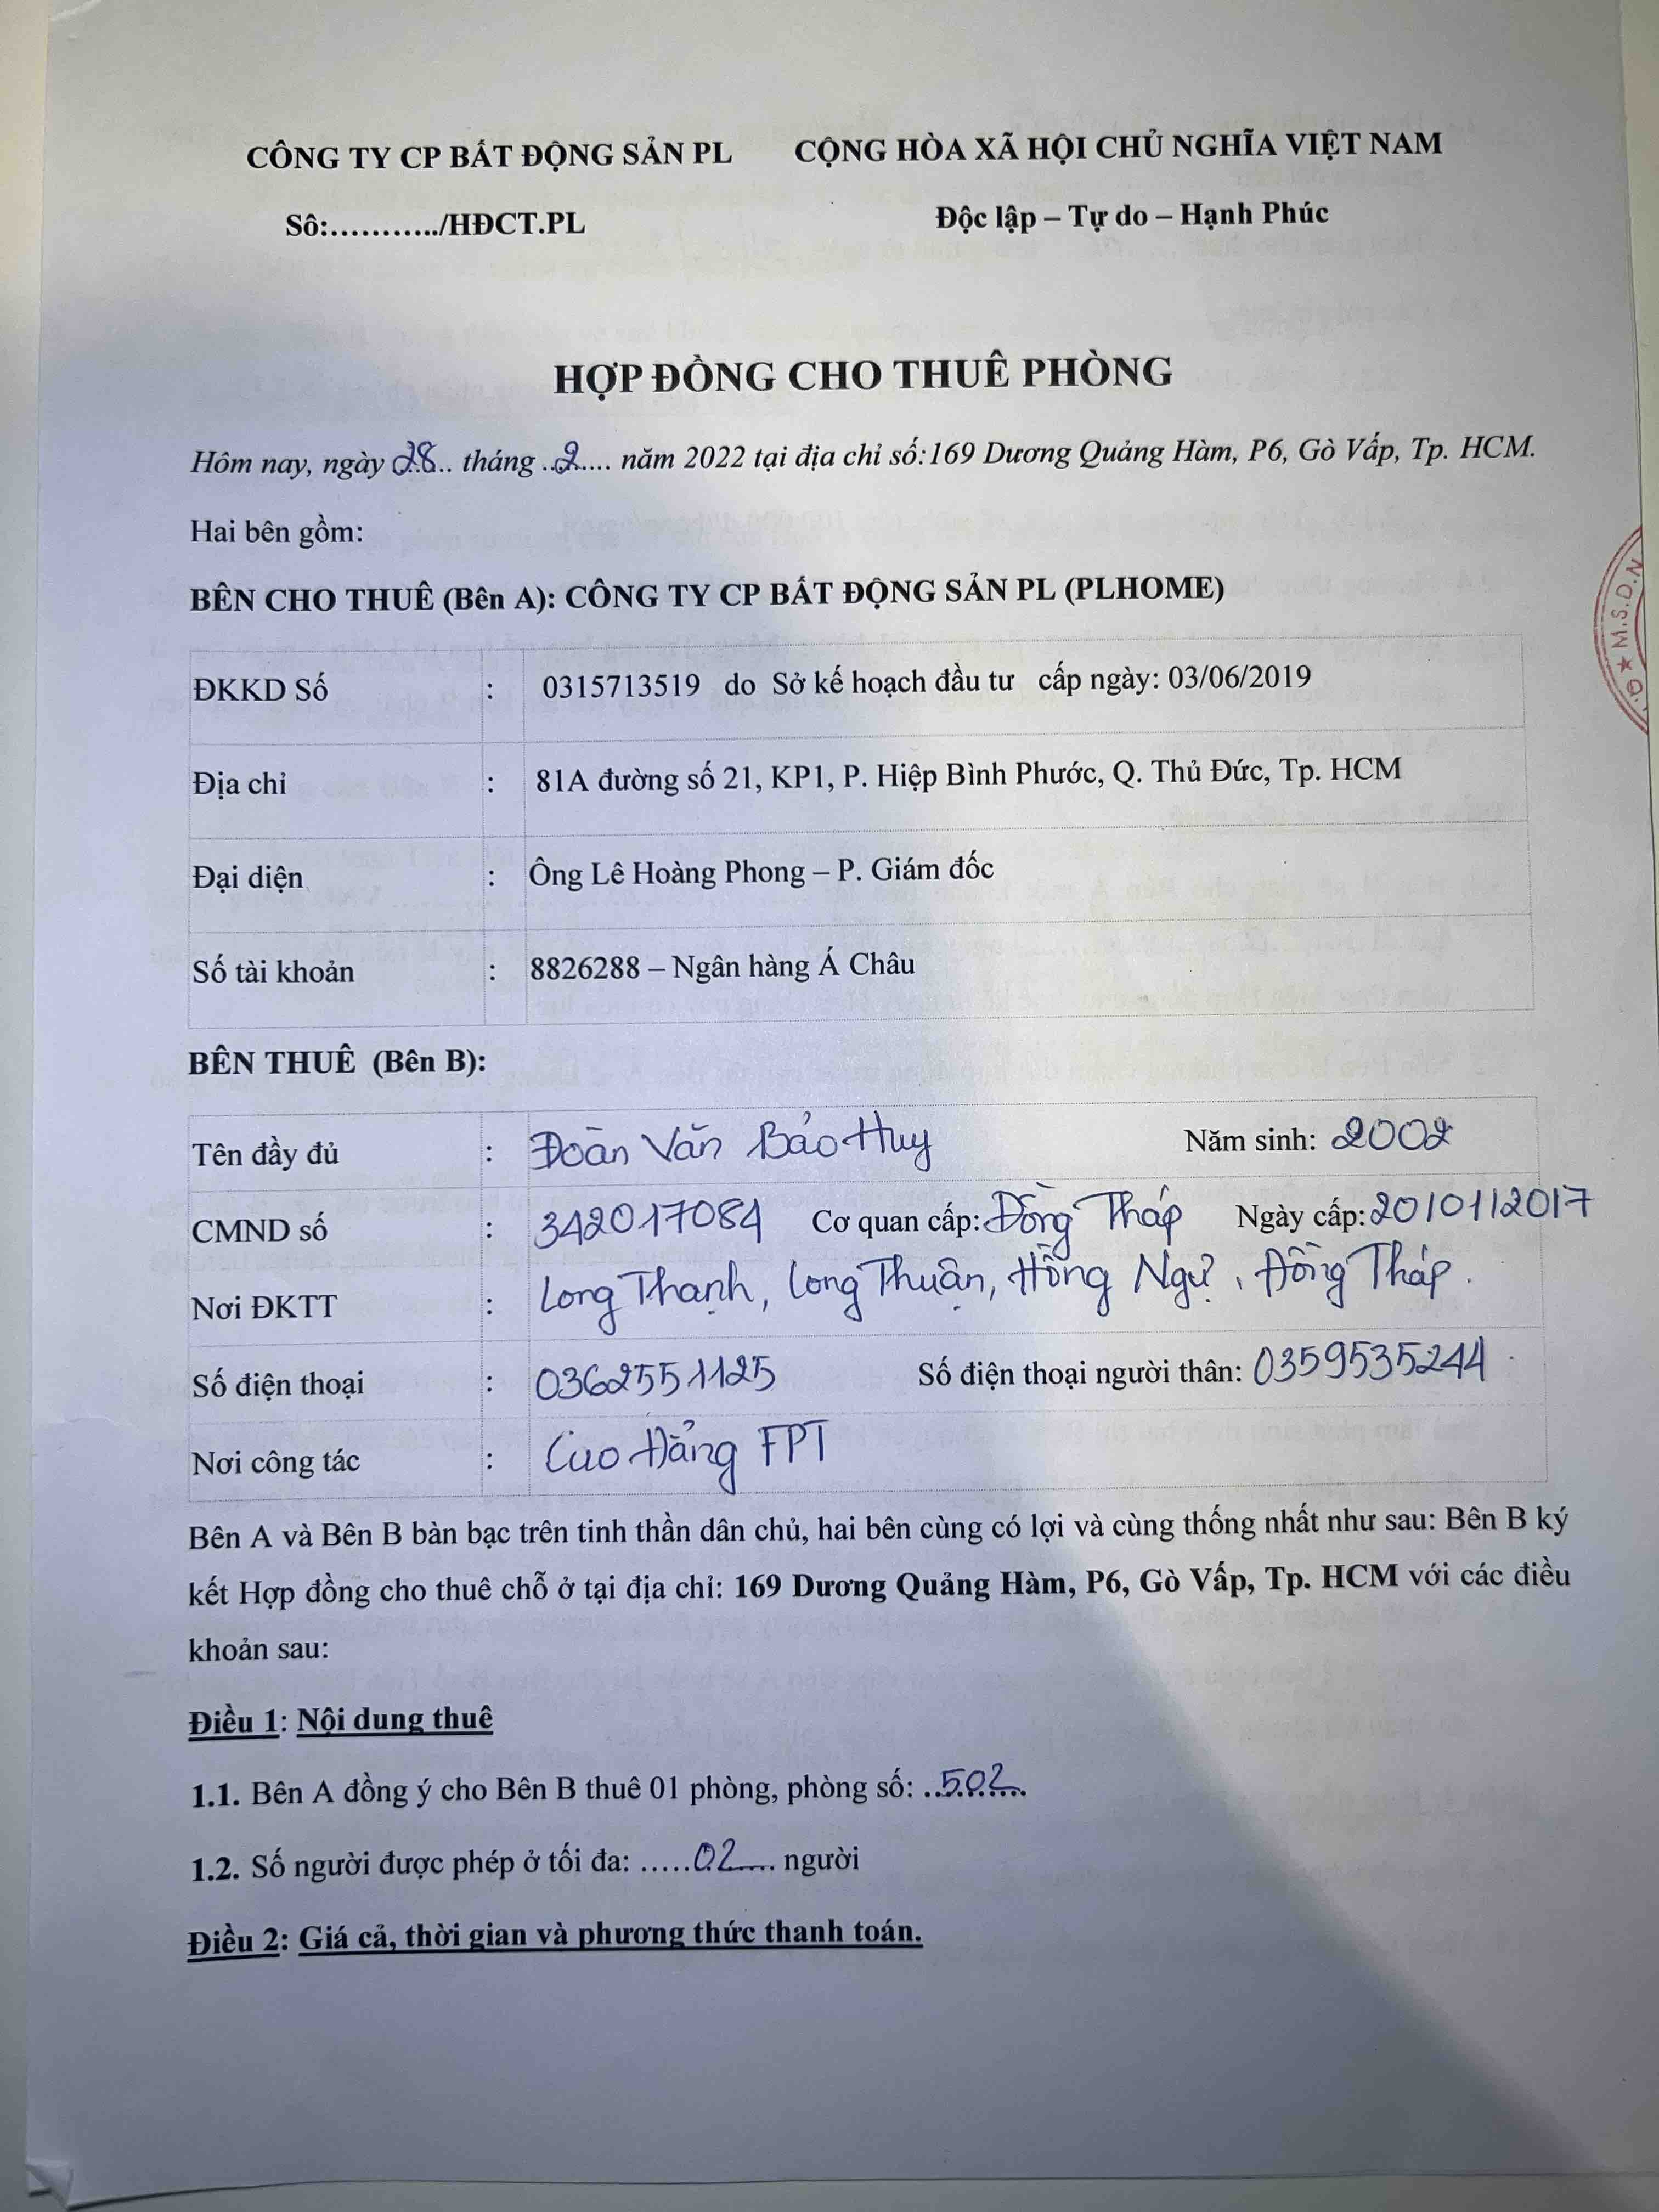 CÔNG TY CP BẤT ĐỘNG SẢN PL CỘNG HÒA XÃ HỘI CHỦ NGHĨA VIỆT NAM
Số:.........../HĐCT.PL Độc lập – Tự do – Hạnh Phúc
HỢP ĐỒNG CHO THUÊ PHÒNG
Hôm nay, ngày 28 tháng 2 năm 2022 tại địa chỉ số:169 Dương Quảng Hàm, P6, Gò Vấp, Tp. HCM.
Hai bên gồm:
BÊN CHO THUÊ (Bên A): CÔNG TY CP BẤT ĐỘNG SẢN PL (PLHOME)
ĐKKD Số : 0315713519 do Sở kế hoạch đầu tư cấp ngày: 03/06/2019
Địa chỉ : 81A đường số 21, KP1, P. Hiệp Bình Phước, Q. Thủ Đức, Tp. HCM
Đại diện : Ông Lê Hoàng Phong – P. Giám đốc
Số tài khoản : 8826288 – Ngân hàng Á Châu
BÊN THUÊ (Bên B):
Tên đầy đủ : Đoàn Văn Bảo Huy Năm sinh: 2002
CMND số : 342017084 Cơ quan cấp: Đồng Tháp Ngày cấp: 20/01/2017
Nơi ĐKTT : Long Thạnh, Long Thuận, Hồng Ngự, Đồng Tháp.
Số điện thoại : 0362551125 Số điện thoại người thân: 0359535244
Nơi công tác : Cao Đẳng FPT
Bên A và Bên B bàn bạc trên tinh thần dân chủ, hai bên cùng có lợi và cùng thống nhất như sau: Bên B ký
kết Hợp đồng cho thuê chỗ ở tại địa chỉ: 169 Dương Quảng Hàm, P6, Gò Vấp, Tp. HCM với các điều
khoản sau:
Điều 1: Nội dung thuê
1.1. Bên A đồng ý cho Bên B thuê 01 phòng, phòng số: 502
1.2. Số người được phép ở tối đa: .....02.... người
Điều 2: Giá cả, thời gian và phương thức thanh toán.
M.S.D.N